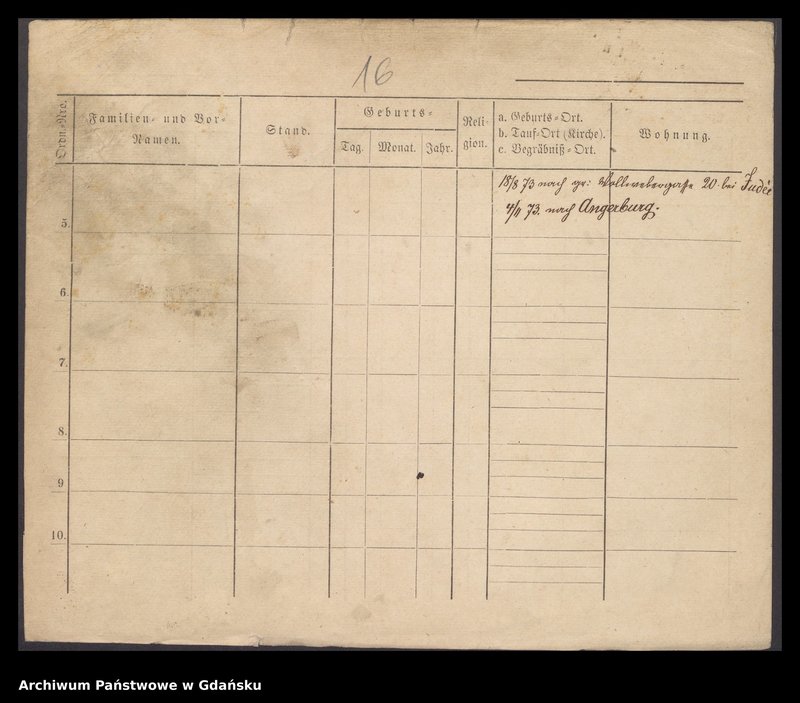 16
Ordn.-Nro.
Familien- und Vor-
Namen.
Stand.
Geburts-
Tag.
Monat.
Jahr.
Reli-
gion.
a. Geburts-Ort.
b. Tauf-Ort (Kirche).
c. Begräbniß-Ort.
Wohnung.
18/8 73 nach gr: Wollwebergasse 20. bei
73. nach Angerburg.
5.
6.
7.
8.
9
10.
Archiwum Państwowe w Gdańsku